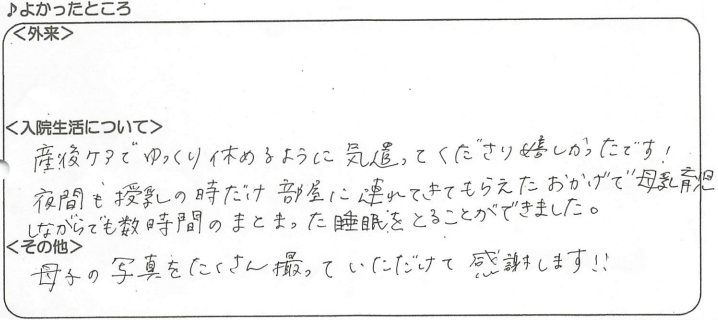 ♪よかったところ
<外来>
<入院生活について>
産後ケアでゆっくり休めるように気遣ってくださり嬉しかったです!
夜間も授乳の時だけ部屋に連れてきてもらえたおかげで母乳育児
しながらでも数時間のまとまった睡眠をとることができました。
<その他>
母子の写真をたくさん撮っていただけて感謝します!!